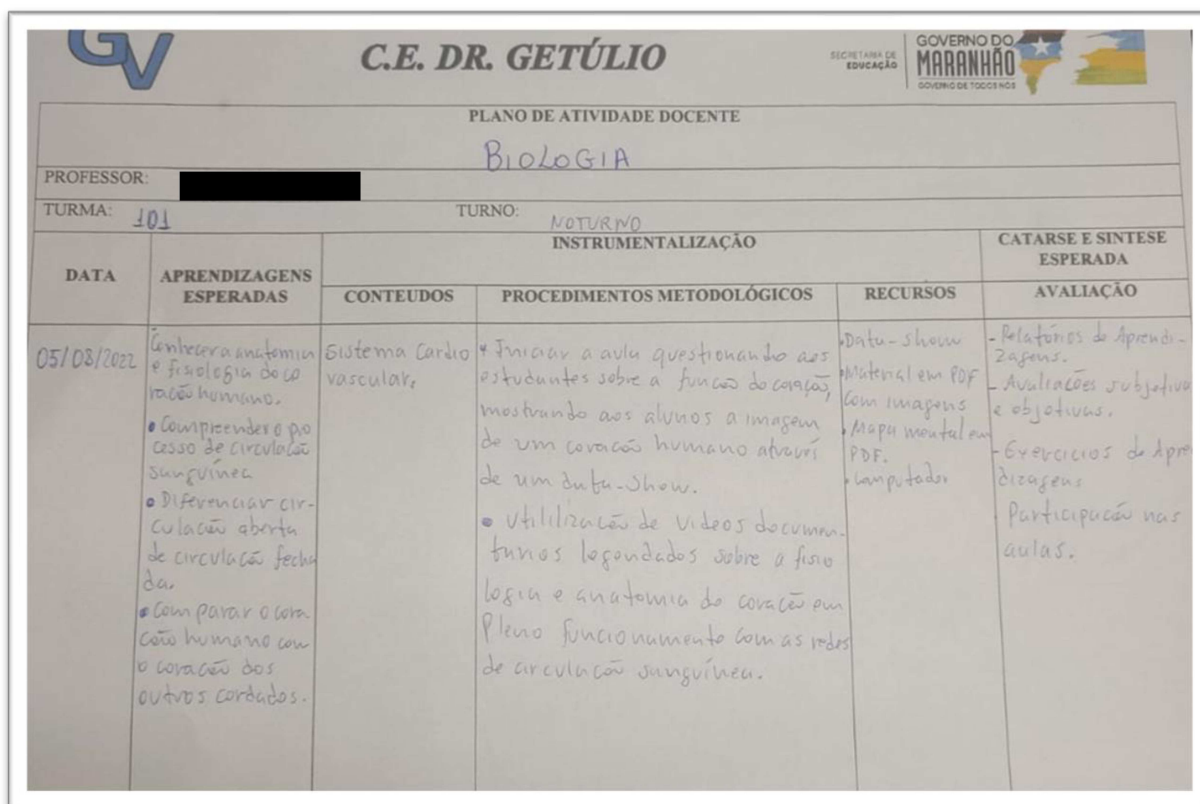 GV
C.E. DR. GETÚLIO
SECRETARIA DE
EDUCAÇÃO
GOVERNO DO
MARANHÃO
GOVERNO DE TODOS NÓS
PLANO DE ATIVIDADE DOCENTE
BIOLOGIA
PROFESSOR:
TURMA: 101 TURNO: NOTURNO
DATA
APRENDIZAGENS
ESPERADAS
INSTRUMENTALIZAÇÃO
CONTEUDOS
PROCEDIMENTOS METODOLÓGICOS
RECURSOS
CATARSE E SINTESE
ESPERADA
AVALIAÇÃO
05/08/2022
Conhecer a anatomia
e fisiologia do co
ração humano.
• Compreender o pro
cesso de circulação
sanguínea
• Diferenciar cir-
culação aberta
de circulação fecha
da.
• Comparar o cora
ção humano com
o coração dos
outros cordados.
Sistema Cardio
vascular.
• Iniciar a aula questionando aos
estudantes sobre a função do coração,
mostrando aos alunos a imagem
de um coração humano atravéi
de um data-show.
• Utililização de videos documen-
tarios legendados sobre a fisio
logia e anatomia do coração em
Pleno funcionamento com as redes
de circulação sanguínea.
• Data-show
• Material em PDF
com imagens
• Mapa mental em
PDF.
• Computador
- Relatórios de Aprendi-
zagens.
- Avaliações subjetiva
e objetivas.
- Exercicios de Apre
dizagens
- Participação nas
aulas.